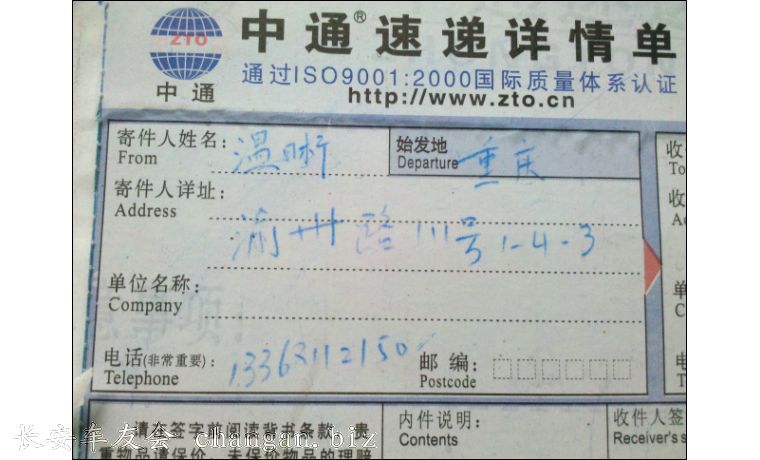 ZTO
中通
中通®速递详情单
通过ISO9001:2000国际质量体系认证
http://www.zto.cn
寄件人姓名: 温晰
From
始发地 重庆
Departure
收
To
寄件人详址:
Address
渝州路111号1-4-3
收
单位名称:
Company
单
C
电话(非常重要): 13363112150
Telephone
邮编:
Postcode
电
T
请在签字前阅读背书条款, 贵
重物品请保价, 未保价物品的理赔
内件说明:
Contents
收件人签
Receiver's s
长安车友会 changan.biz